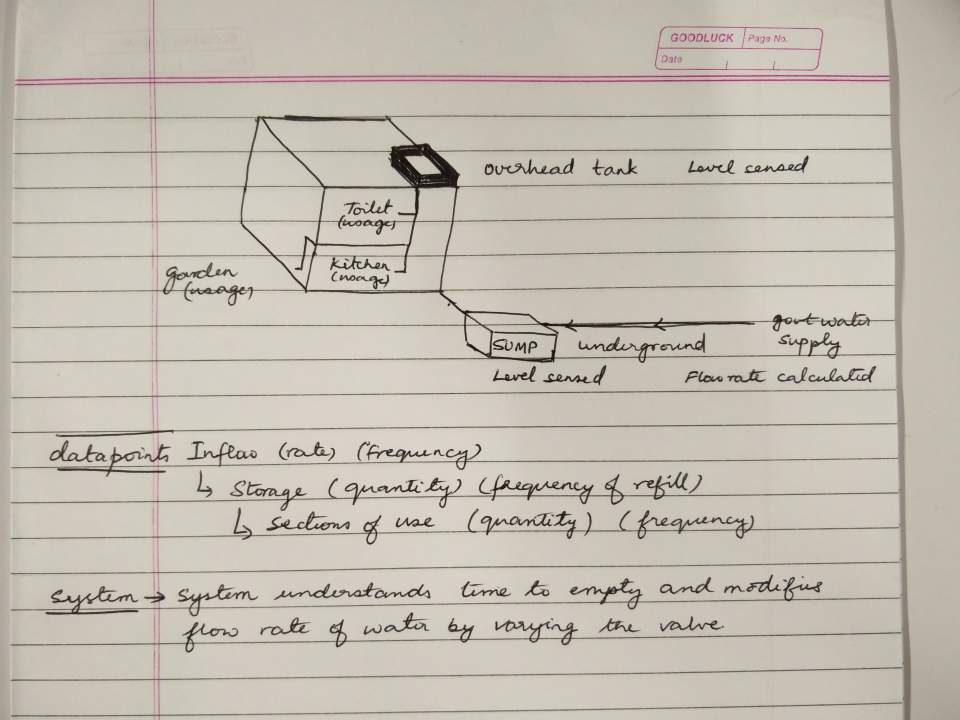 GOODLUCK Page No.
Date
overhead tank Level sensed
Toilet
(usage)
Kitchen
(usage)
garden
(usage)
govt water
supply
SUMP underground
Level sensed Flow rate calculated
datapoints Inflow (rate) (frequency)
↳ Storage (quantity) (frequency of refill)
↳ Sections of use (quantity) (frequency)
System → System understands time to empty and modifies
flow rate of water by varying the valve.